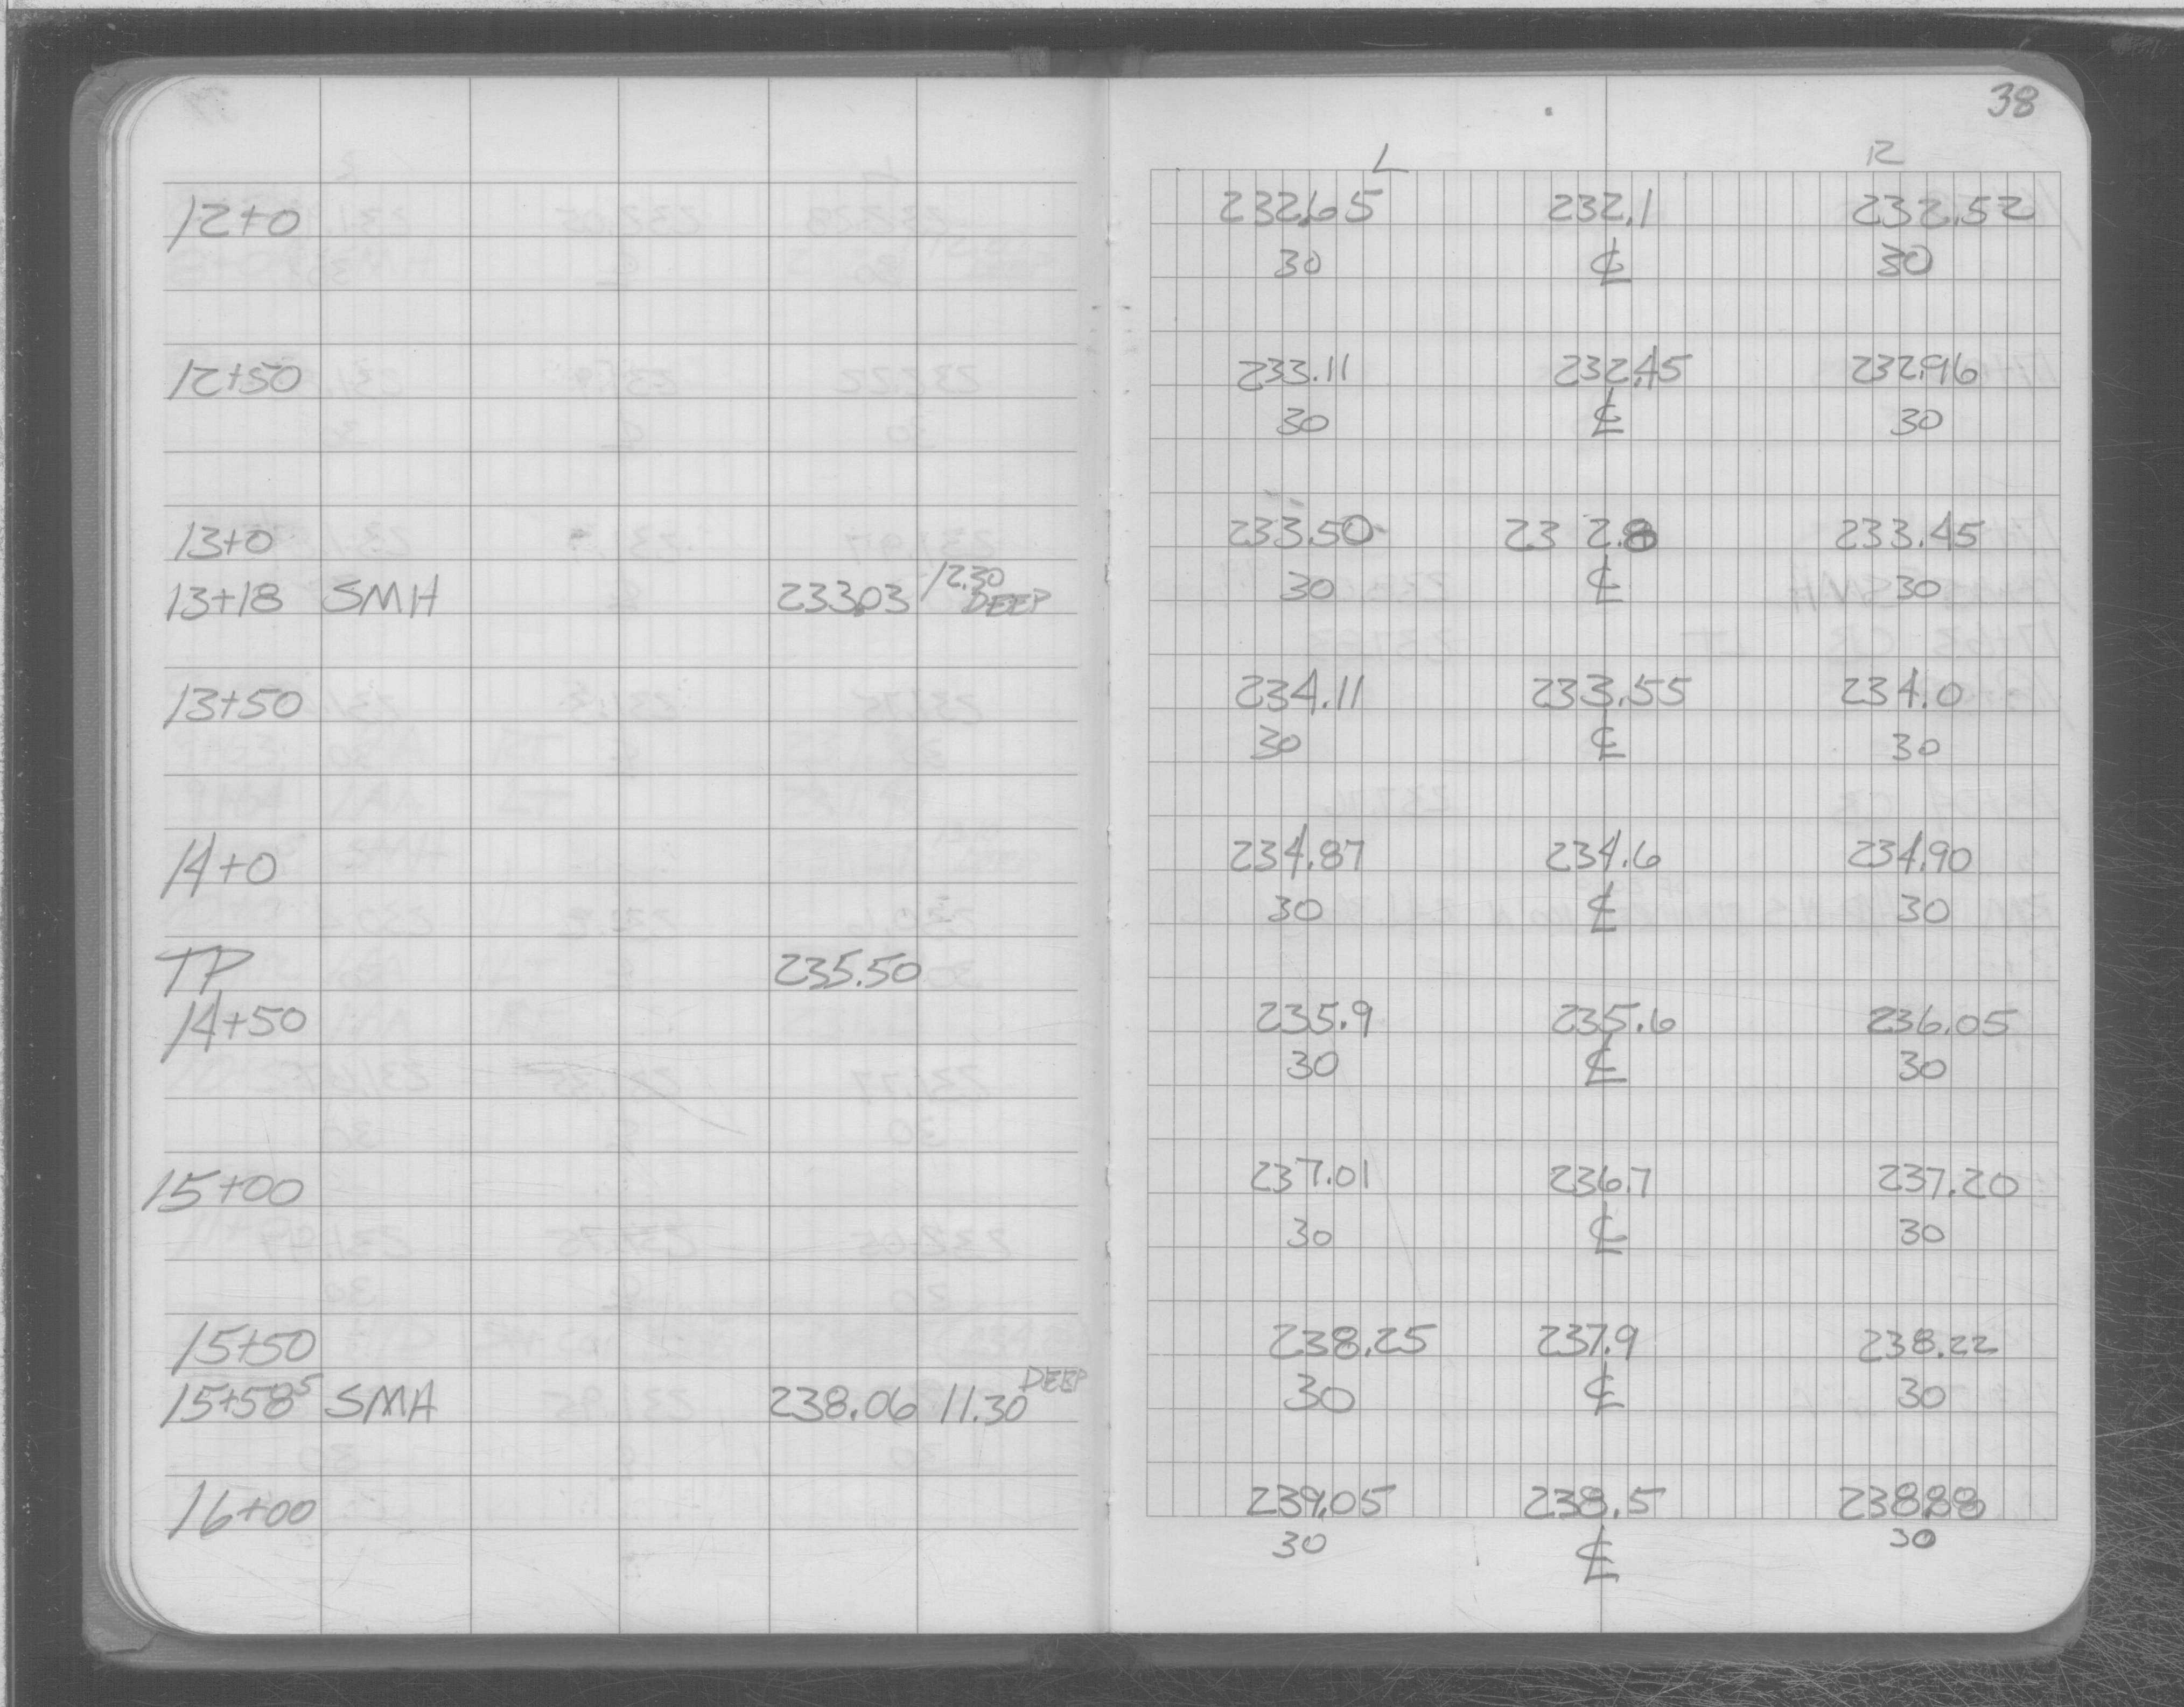 38
L R
12+0 232.65 232.1 232.52
30 ℄ 30
12+50 233.11 232.45 232.96
30 ℄ 30
13+0 233.50 232.8 233.45
13+18 SMH 233.03 12.30 DEEP 30 ℄ 30
13+50 234.11 233.55 234.0
30 ℄ 30
14+0 234.87 234.6 234.90
30 ℄ 30
TP 235.50
14+50 235.9 235.6 236.05
30 ℄ 30
15+00 237.01 236.7 237.20
30 ℄ 30
15+50 238.25 237.9 238.22
15+58⁵ SMH 238.06 11.30 DEEP 30 ℄ 30
16+00 239.05 238.5 238.88
30 ℄ 30